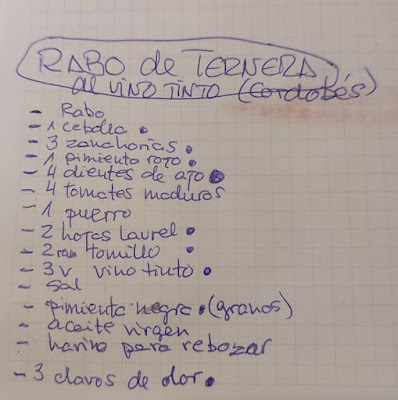 RABO de TERNERA
al VINO TINTO (Cordobés)
- Rabo
- 1 cebolla •
- 3 zanahorias •
- 1 pimiento rojo •
- 4 dientes de ajo •
- 4 tomates maduros
- 1 puerro
- 2 hojas laurel •
- 2 ram tomillo •
- 3 v vino tinto •
- sal
- pimienta negra • (granos)
- aceite virgen
- harina para rebozar
- 3 clavos de olor •